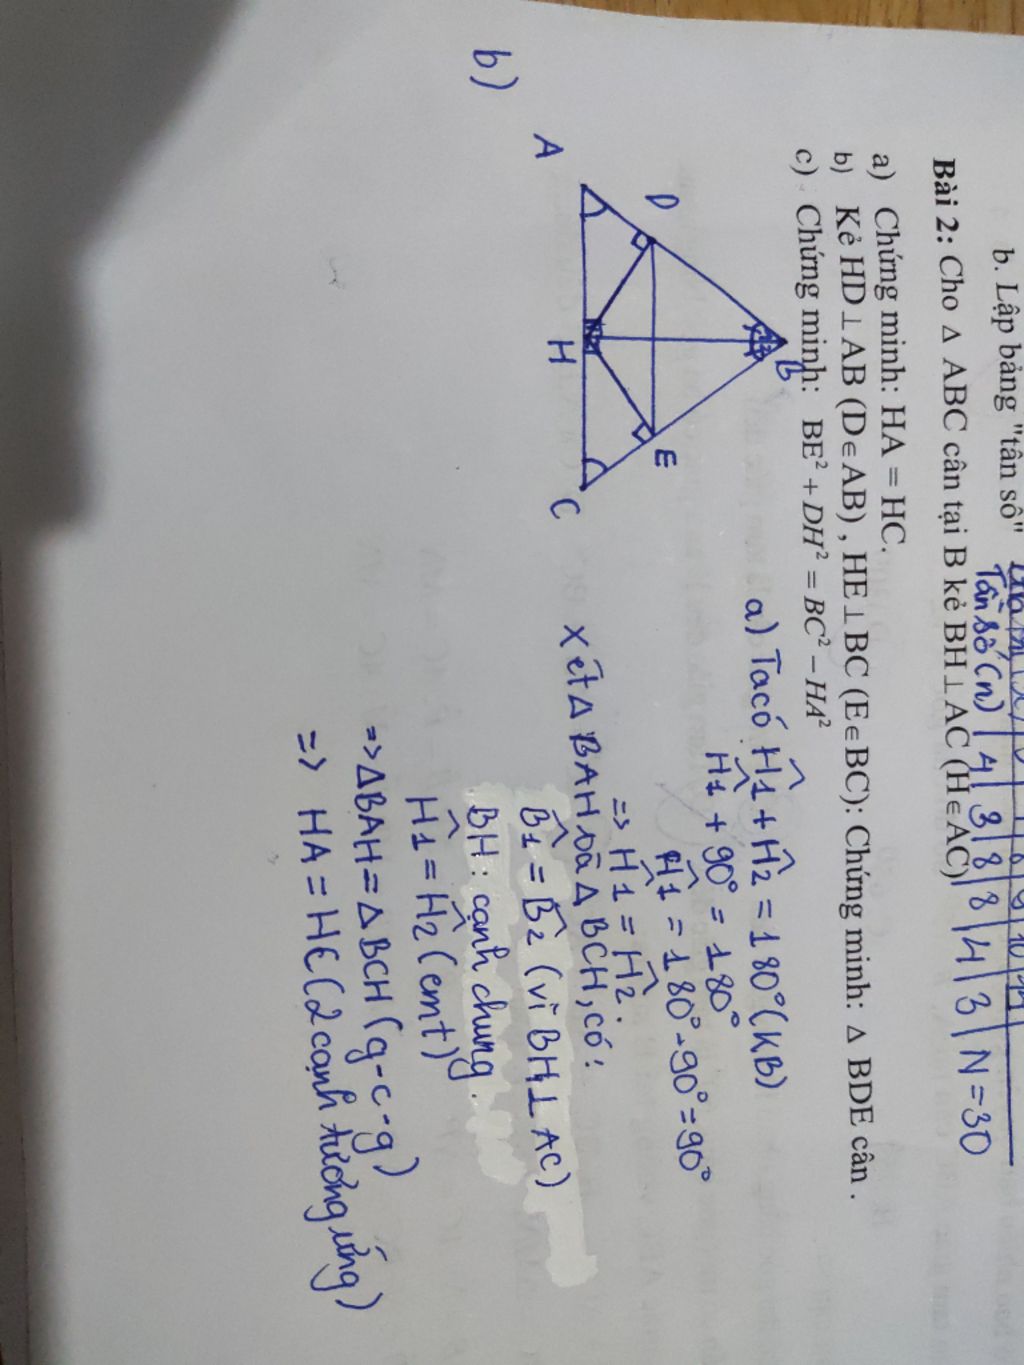 b. Lập bảng "tân sô"
Tần số (n) | 4 | 3 | 8 | 8 | 4 | 3 | N = 30
Bài 2: Cho Δ ABC cân tại B kẻ BH ⊥ AC (H ∈ AC)
a) Chứng minh: HA = HC.
b) Kẻ HD ⊥ AB (D ∈ AB) , HE ⊥ BC (E ∈ BC): Chứng minh: Δ BDE cân .
c) Chứng minh: BE² + DH² = BC² − HA²
B
D
E
A
H
C
a) Ta có Ĥ1 + Ĥ2 = 180° (KB)
Ĥ1 + 90° = 180°
Ĥ1 = 180° - 90° = 90°
=> Ĥ1 = Ĥ2.
Xét Δ BAH và Δ BCH, có:
B̂1 = B̂2 (vì BH ⊥ AC)
BH: cạnh chung.
Ĥ1 = Ĥ2 (cmt)
=> ΔBAH = Δ BCH (g-c-g)
=> HA = HC (2 cạnh tương ứng)
b)